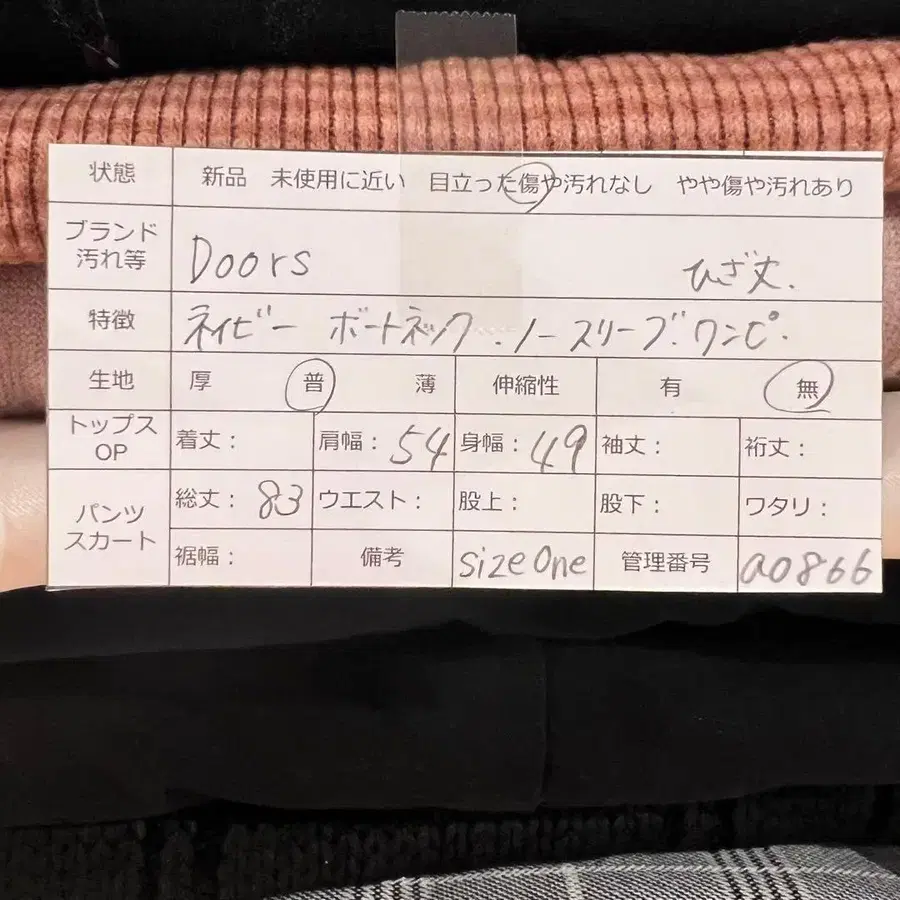 状態 新品 未使用に近い 目立った傷や汚れなし やや傷や汚れあり
ブランド
汚れ等 Doors ひざ丈.
特徴 ネイビー ボートネック.ノースリーブ.ワンピ.
生地 厚 普 薄 伸縮性 有 無
トップス
OP 着丈: 肩幅: 54 身幅: 49 袖丈: 裄丈:
パンツ
スカート 総丈: 83 ウエスト: 股上: 股下: ワタリ:
裾幅: 備考 size One 管理番号 a0866